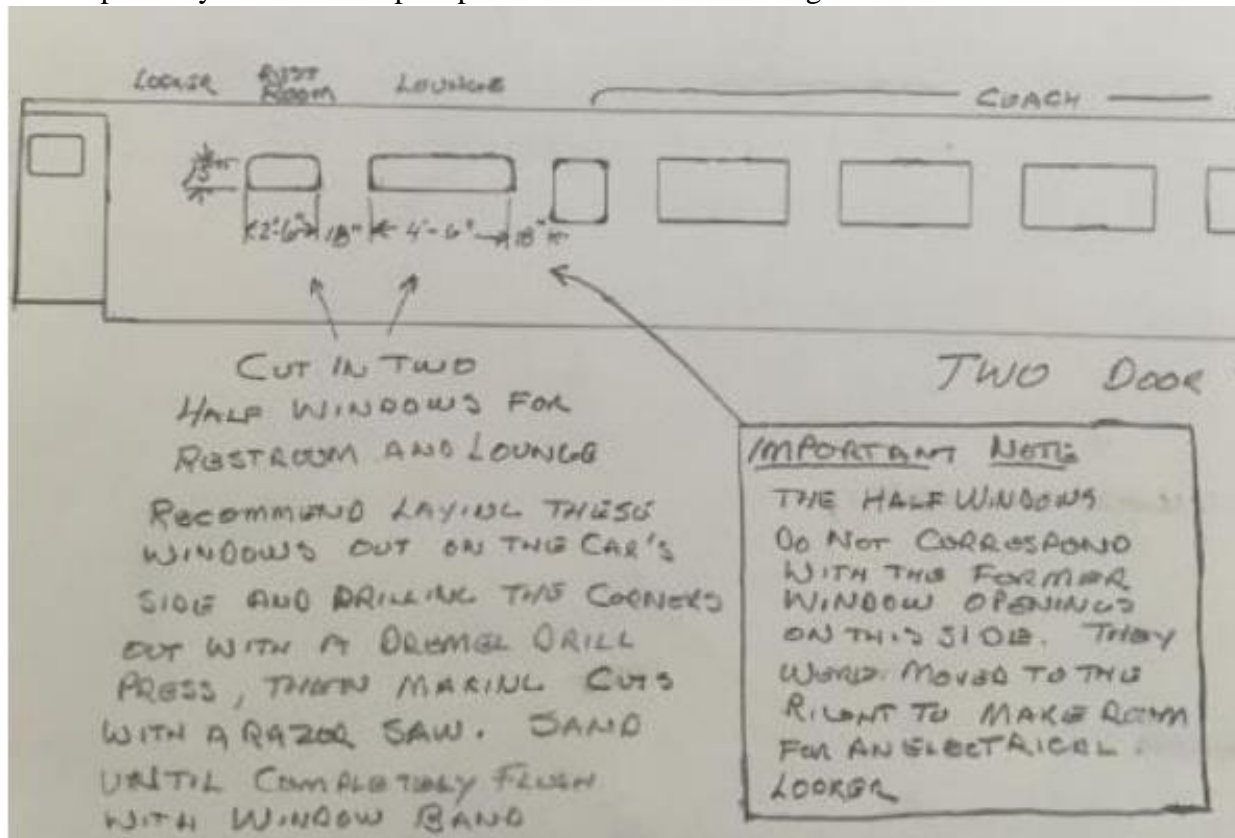 LOCKER REST ROOM LOUNGE
COACH
2'-6" 18" 4'-6" 18"
CUT IN TWO
HALF WINDOWS FOR
RESTROOM AND LOUNGE
RECOMMEND LAYING THESE
WINDOWS OUT ON THE CAR'S
SIDE AND DRILLING THE CORNERS
OUT WITH A DREMEL DRILL
PRESS, THEN MAKING CUTS
WITH A RAZOR SAW. SAND
UNTIL COMPLETELY FLUSH
WITH WINDOW BAND
TWO DOOR
IMPORTANT NOTE
THE HALF WINDOWS
DO NOT CORRESPOND
WITH THE FORMER
WINDOW OPENINGS
ON THIS SIDE. THEY
WERE MOVED TO THE
RIGHT TO MAKE ROOM
FOR AN ELECTRICAL
LOCKER